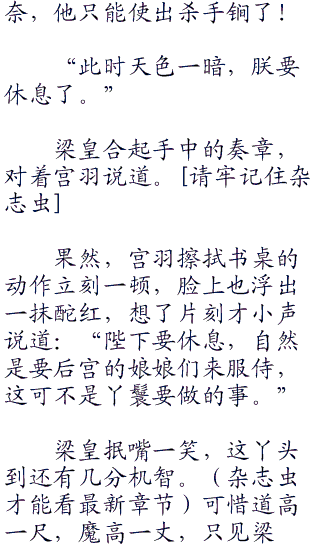 奈，他只能使出杀手锏了！
“此时天色一暗，朕要
休息了。”
梁皇合起手中的奏章，
对着宫羽说道。[请牢记住杂
志虫]
果然，宫羽擦拭书桌的
动作立刻一顿，脸上也浮出
一抹酡红，想了片刻才小声
说道：“陛下要休息，自然
是要后宫的娘娘们来服侍，
这可不是丫鬟要做的事。”
梁皇抿嘴一笑，这丫头
到还有几分机智。（杂志虫
才能看最新章节）可惜道高
一尺，魔高一丈，只见梁